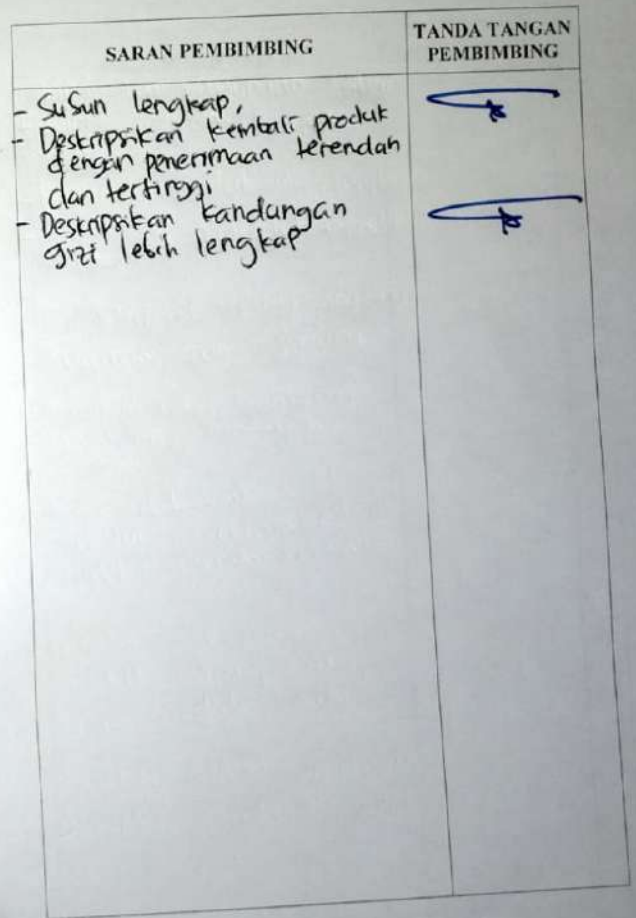 SARAN PEMBIMBING
TANDA TANGAN
PEMBIMBING
- Susun lengkap,
- Deskripsikan kembali produk
dengan penerimaan terendah
dan tertinggi
- Deskripsikan kandungan
gizi lebih lengkap